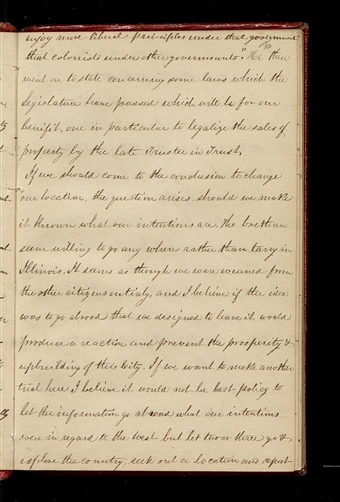 enjoy most liberal principles under that government
than colonists under other governments." He then
went on to state concerning some laws which the
legislature have passed which will be for our
benifit, one in particular to legalize the sales of
property by the late Trustee in Trust.
If we should come to the conclusion to change
our location, the question arises, should we make
it known what our intentions are. The brethren
seem willing to go any where rather than tarry in
Illinois. It seems as though we were weaned from
the other citizens entirely, and I believe if the idea
was to go abroad that we designed to leave it would
produce a reaction and prevent the prosperity &
upbuilding of this City. If we want to make another
trial here I believe it would not be best policy to
let the information go abroad what our intentions
were in regard to the West but let two or three go &
explore the country, seek out a location and report